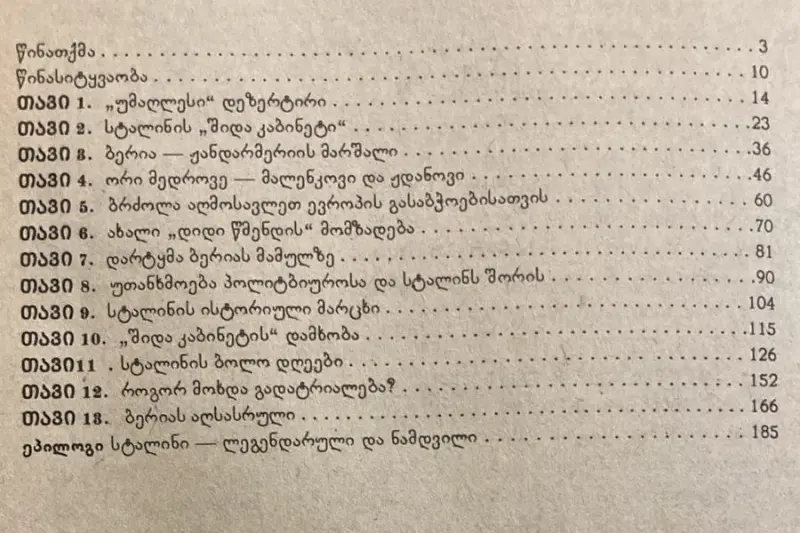 წინათქმა . . . . . . . . . . . . . . . . . . . . . . . . . . . . . . . . . . . . . . . . . . . . . . 3
წინასიტყვაობა . . . . . . . . . . . . . . . . . . . . . . . . . . . . . . . . . . . . . . . . . 10
თავი 1. „უმაღლესი“ დეზერტირი . . . . . . . . . . . . . . . . . . . . . . . . . . . 14
თავი 2. სტალინის „შიდა კაბინეტი“ . . . . . . . . . . . . . . . . . . . . . . . . . . 23
თავი 3. ბერია — ჟანდარმერიის მარშალი . . . . . . . . . . . . . . . . . . . . . . 36
თავი 4. ორი მედროვე — მალენკოვი და ჟდანოვი . . . . . . . . . . . . . . . . . 46
თავი 5. ბრძოლა აღმოსავლეთ ევროპის გასაბჭოებისათვის . . . . . . . . . . . . 60
თავი 6. ახალი „დიდი წმენდის“ მომზადება . . . . . . . . . . . . . . . . . . . . . 70
თავი 7. დარტყმა ბერიას მამულზე . . . . . . . . . . . . . . . . . . . . . . . . . . 81
თავი 8. უთანხმოება პოლიტბიუროსა და სტალინს შორის . . . . . . . . . . . . . 90
თავი 9. სტალინის ისტორიული მარცხი . . . . . . . . . . . . . . . . . . . . . . . 104
თავი 10. „შიდა კაბინეტის“ დამხობა . . . . . . . . . . . . . . . . . . . . . . . . 115
თავი11 . სტალინის ბოლო დღეები . . . . . . . . . . . . . . . . . . . . . . . . . . 126
თავი 12. როგორ მოხდა გადატრიალება? . . . . . . . . . . . . . . . . . . . . . . 152
თავი 13. ბერიას აღსასრული . . . . . . . . . . . . . . . . . . . . . . . . . . . . . 166
ეპილოგი სტალინი — ლეგენდარული და ნამდვილი . . . . . . . . . . . . . . . . 185